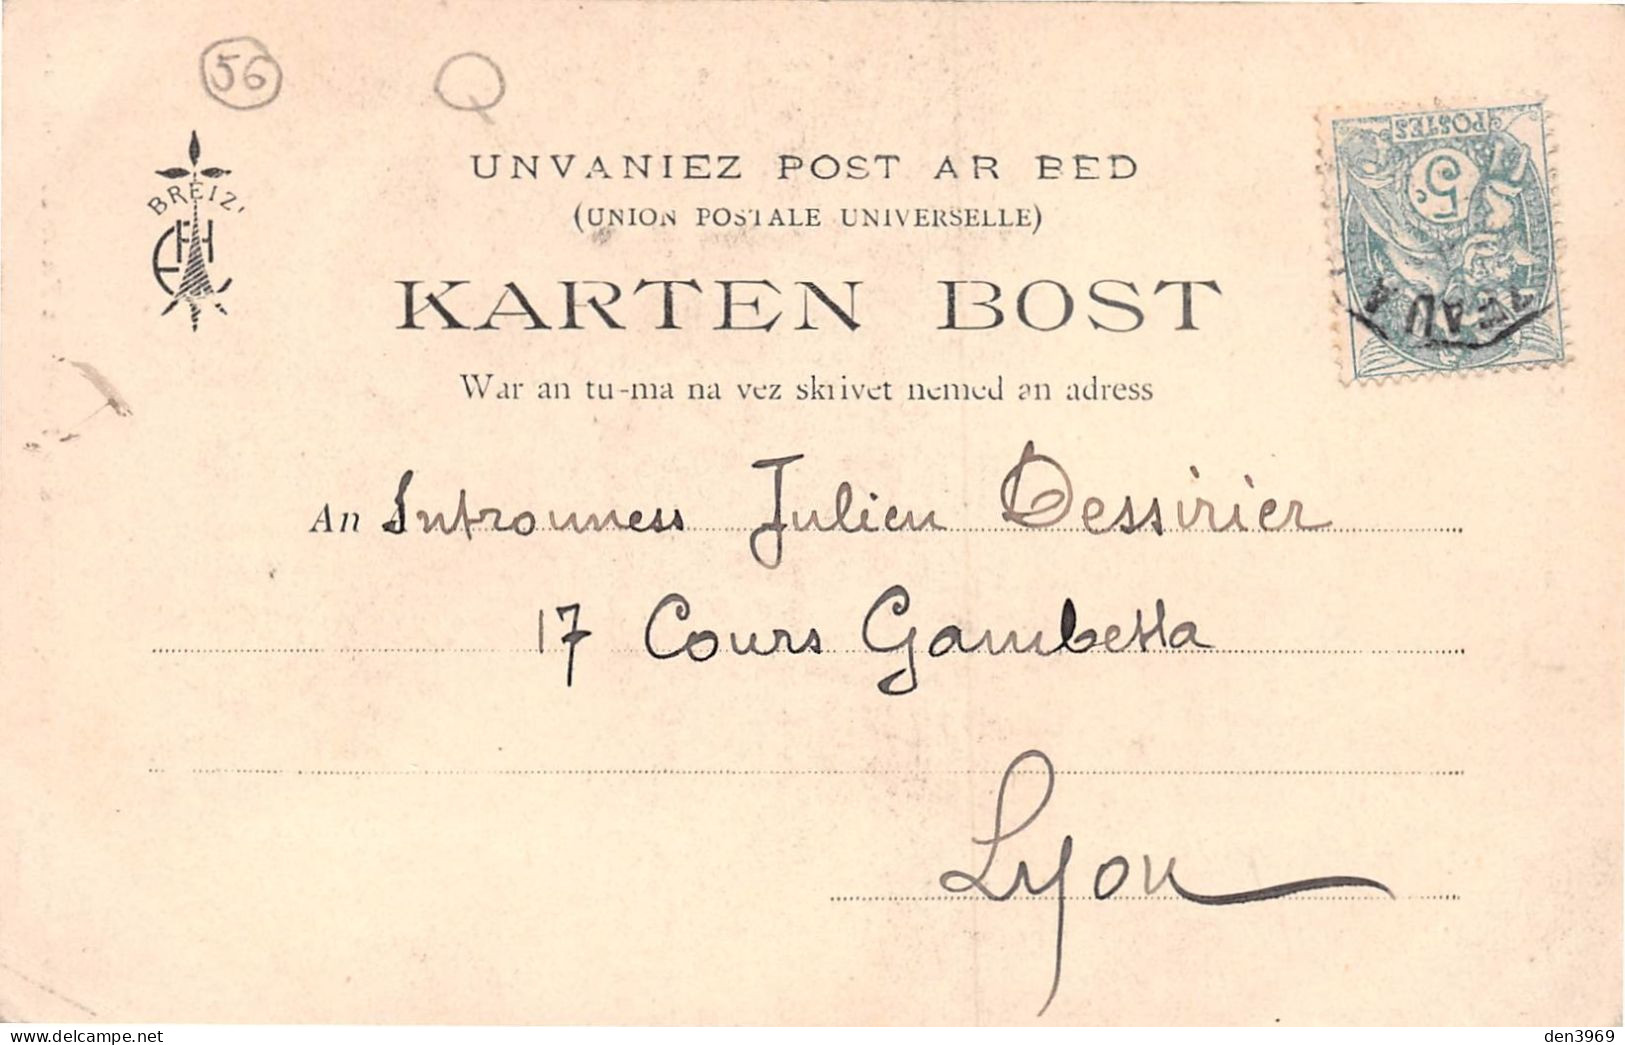 56
BREIZ'
UNVANIEZ POST AR BED
(UNION POSTALE UNIVERSELLE)
KARTEN BOST
War an tu-ma na vez skrivet nemed an adress
POSTES
5 c.
An Intronness Julien Dessirier
17 Cours Gambetta
Lyon
den3969